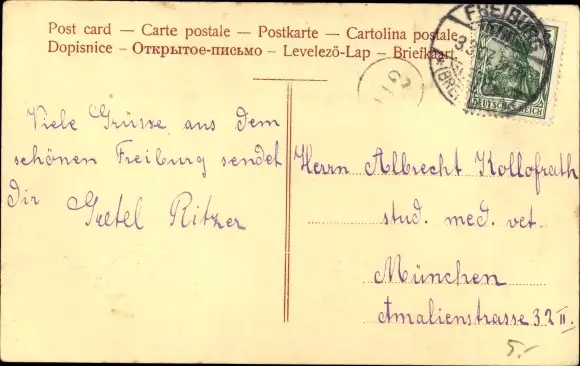 Post card — Carte postale — Postkarte — Cartolina postale
Dopisnice — Открытое-письмо — Levelező-Lap — Briefkaart
FREIBURG
DEUTSCHES REICH
Viele Grüsse aus dem
schönen Freiburg sendet
Dir Gretel Ritzer
Herrn Albrecht Kollofrath
stud. med. vet.
München
Amalienstrasse 32 II.
5.-